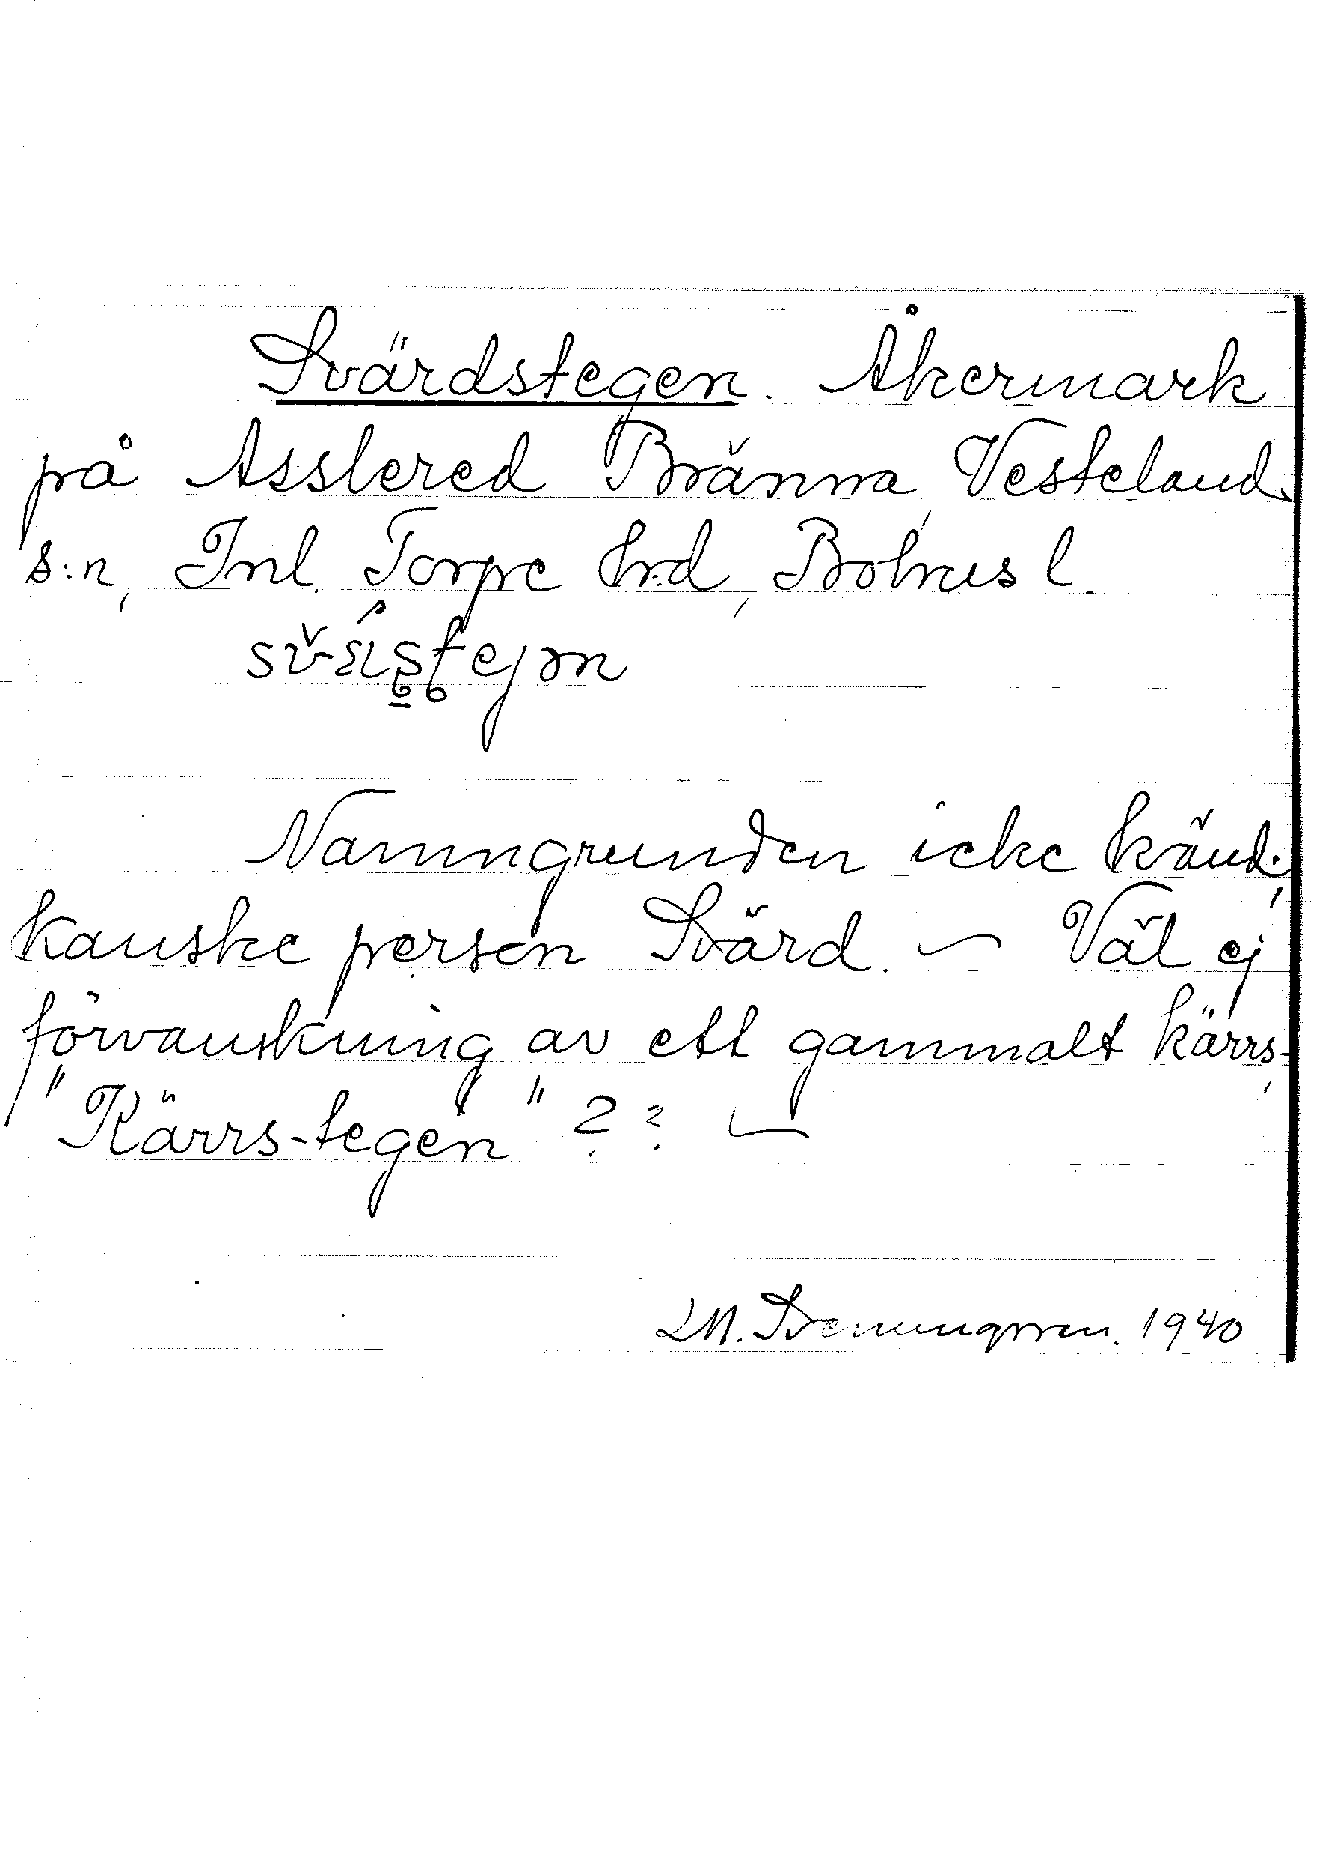 Svärdstegen. Åkermark
på Asslered Bränna, Vesteland
s:n, Inl. Torpe hrd, Bohus l.
Namngrunden icke känd;
kanske person Svärd. — Väl ej
förvanskning av ett gammalt kärrs-,
"Kärrs-tegen" ? ? —
1940